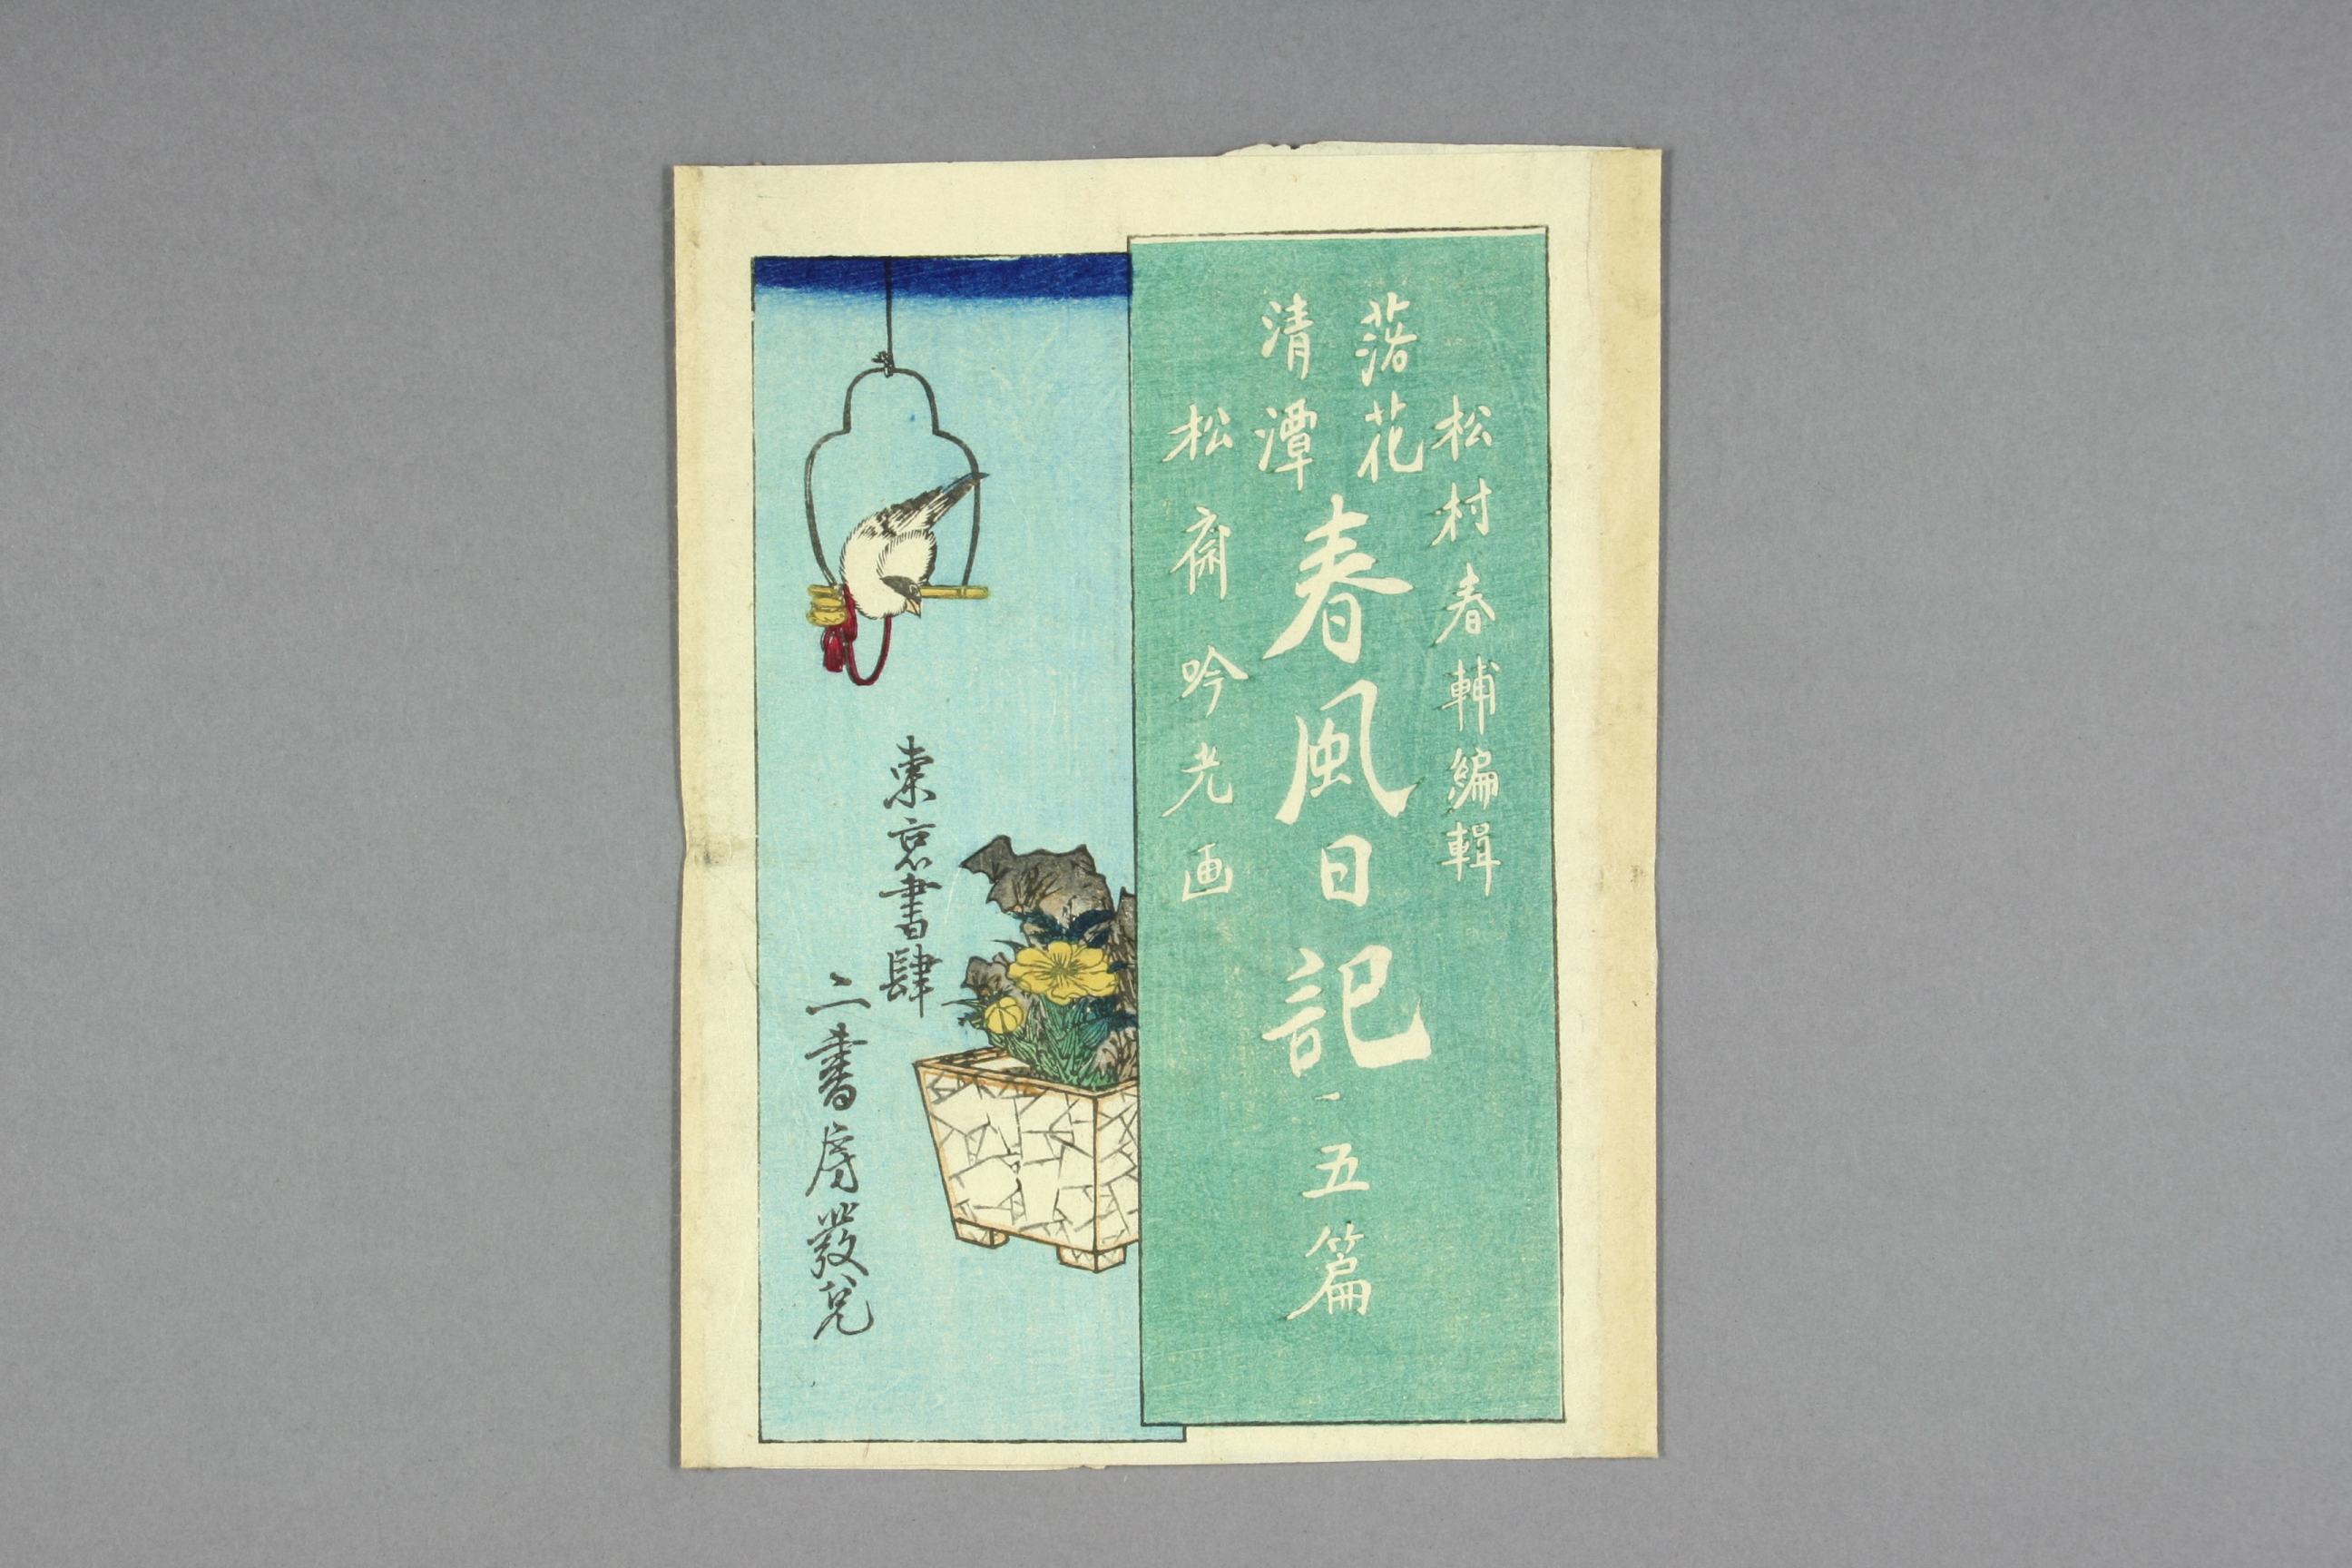 松村春輔編輯
落花
清潭
春風日記 五篇
松斎吟光画
東京書肆
二書房發兌